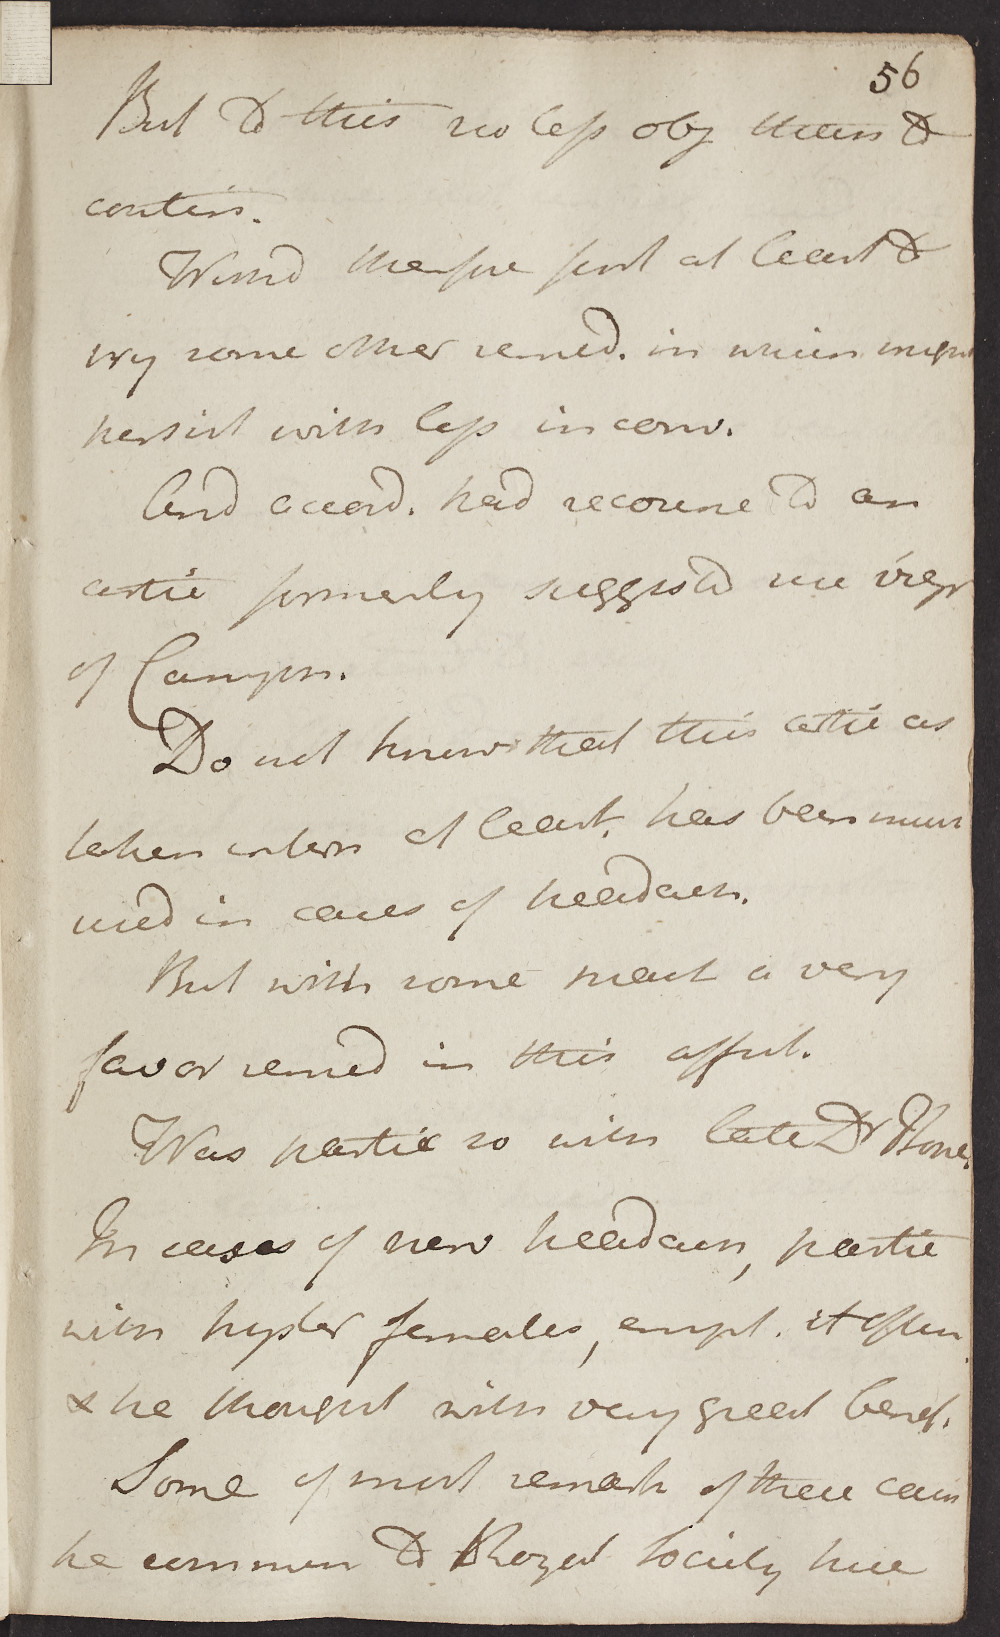 56
But to this no less obj then to
contin.
Wishd therefore first at least to
try some other remed. in which might
persist with less inconv.
And accord. had recourse to an
artic formerly suggestd viz
of Camphr.
Do not know that this artic as
taken intern at least, has been much
used in cases of headach.
But with some pract a very
favor remed in this affect.
Was partic so with late Dr Home
In cases of nerv headach, partic
with hyster females, empl. it often
& he thought with very great benef.
Some of most remark of these cases
he commun to Royal Society here